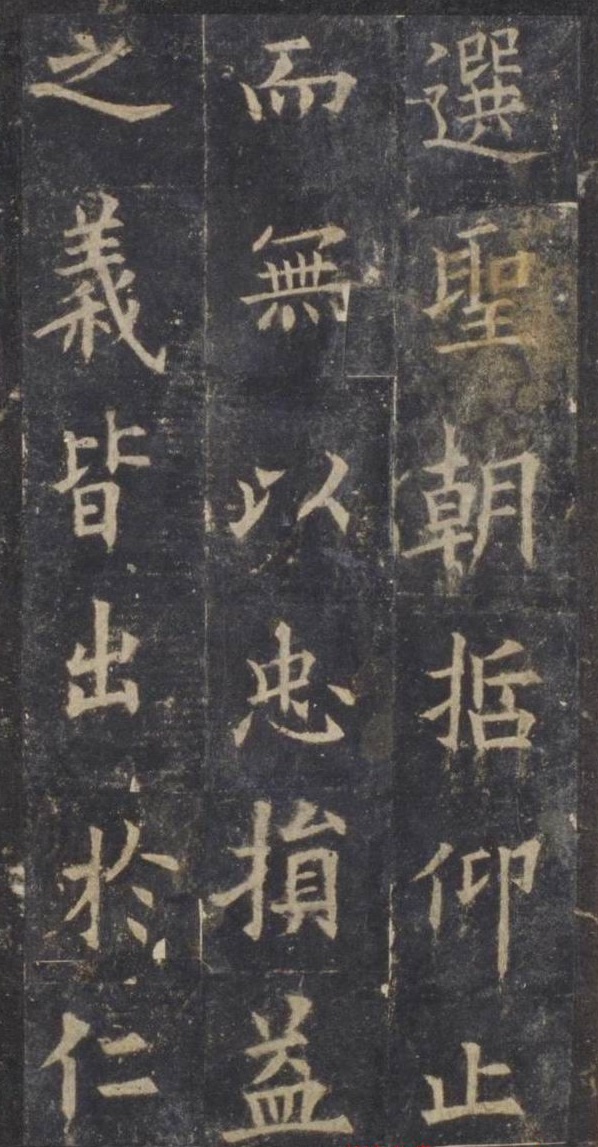 選聖朝括仰止
而無以忠損益
之義皆出於仁